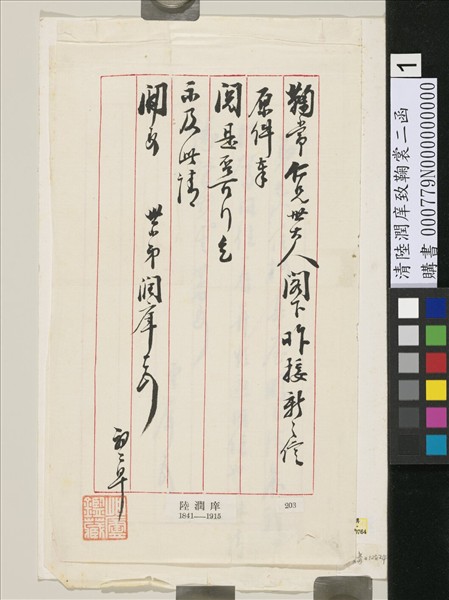 鞠常仁兄世大人閣下昨接新之信
原件奉
閱是否可行乞
示及此請
開安 世弟潤庠頓首
初二早
陸潤庠
1841——1915
203
1
清陸潤庠致鞠裳二函
購書 000779N000000000